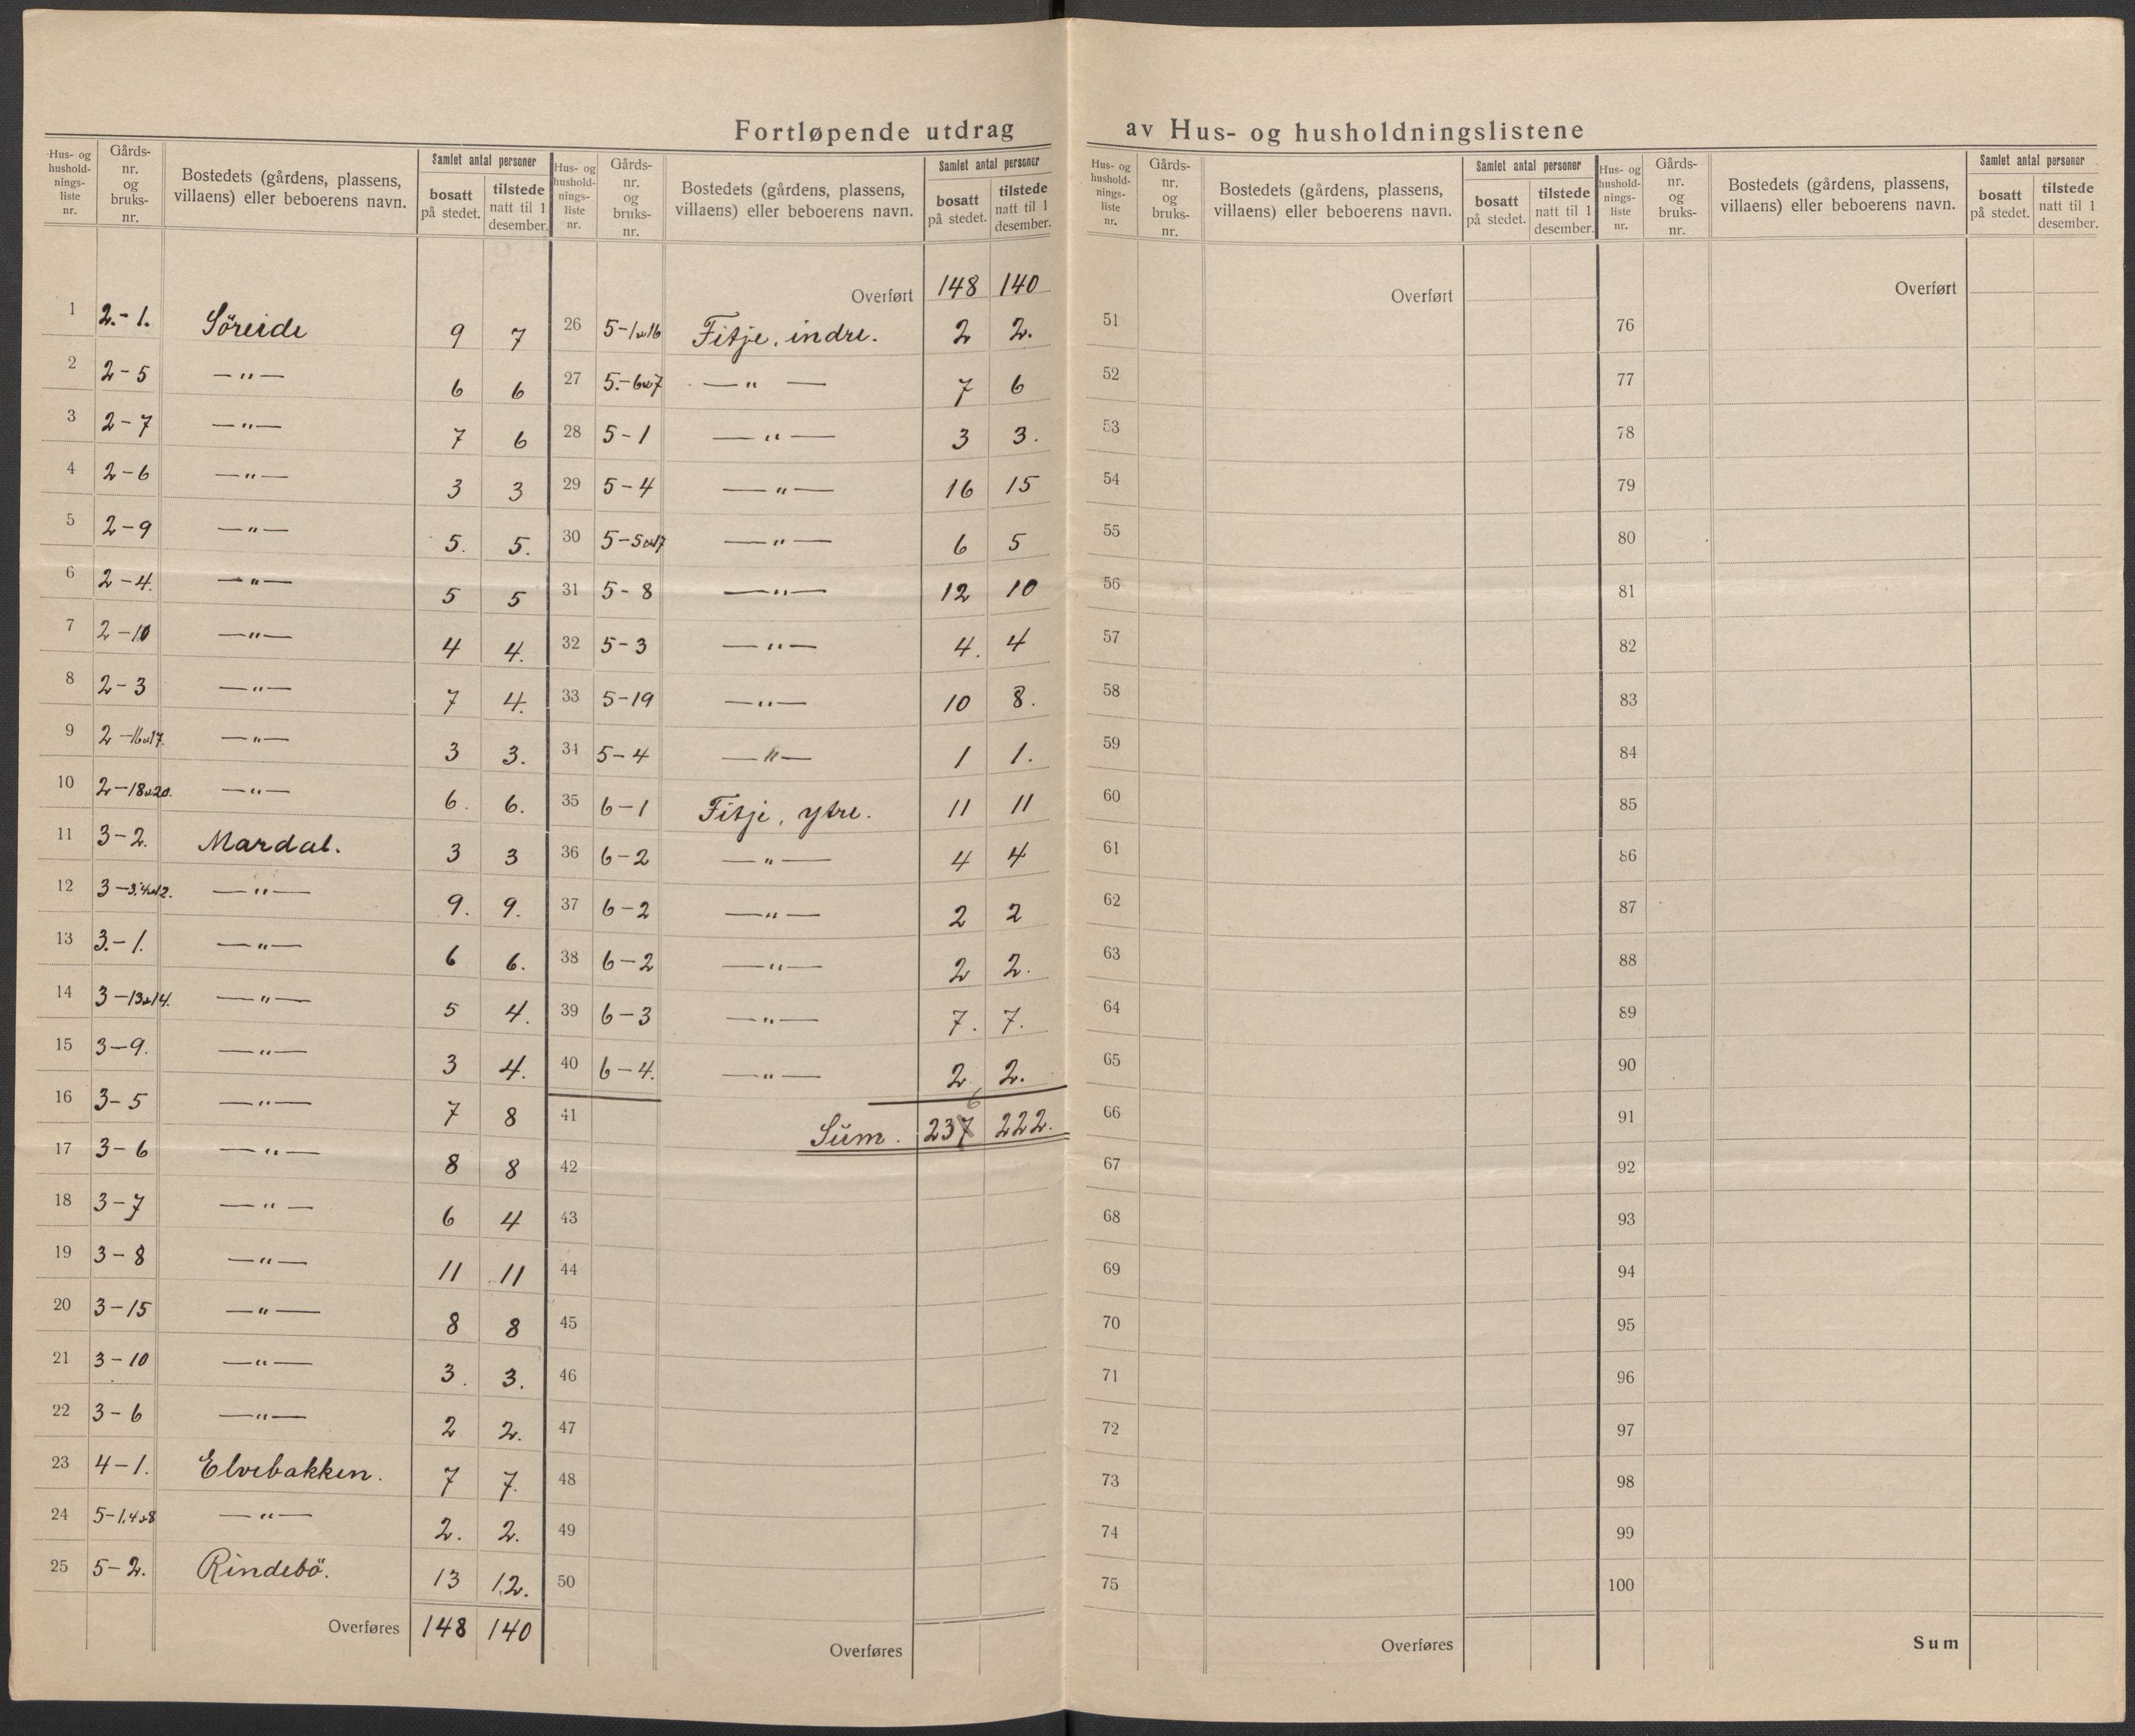 Fortløpende utdrag av Hus- og husholdningslistene
Hus- og hushold-nings-liste nr. Gårds-nr. og bruks-nr. Bostedets (gårdens, plassens, villaens) eller beboerens navn. Samlet antal personer bosatt på stedet. tilstede natt til 1 desember.
1 2.-1. Söreide 9 7
2 2-5 —"— 6 6
3 2-7 —"— 7 6
4 2-6 —"— 3 3
5 2-9 —"— 5. 5.
6 2-4. —"— 5 5
7 2-10 —"— 4 4.
8 2-3 —"— 7 4.
9 2-16o17. —"— 3 3.
10 2-18o20. —"— 6. 6.
11 3-2. Mardal. 3 3
12 3-3.4o12. —"— 9. 9.
13 3.-1. —"— 6 6.
14 3-13o14. —"— 5 4.
15 3-9. —"— 3 4.
16 3-5 —"— 7 8
17 3-6 —"— 8 8
18 3-7 —"— 6 4
19 3-8 —"— 11 11
20 3-15 —"— 8 8
21 3-10 —"— 3. 3.
22 3-6 —"— 2 2.
23 4-1. Elvebakken. 7 7.
24 5-1.4o8 —"— 2. 2.
25 5-2. Rindebö. 13 12.
Overføres 148 140
Hus- og hushold-nings-liste nr. Gårds-nr. og bruks-nr. Bostedets (gårdens, plassens, villaens) eller beboerens navn. Samlet antal personer bosatt på stedet. tilstede natt til 1 desember.
Overført 148 140
26 5-1o16 Fitje, indre. 2 2.
27 5.-6o7 —"— 7 6
28 5-1 —"— 3 3.
29 5-4 —"— 16 15
30 5-5o17 —"— 6 5
31 5-8 —"— 12 10
32 5-3 —"— 4. 4
33 5-19 —"— 10 8.
34 5-4 —"— 1 1.
35 6-1 Fitje, ytre. 11 11
36 6-2 —"— 4 4
37 6-2 —"— 2 2
38 6-2 —"— 2 2.
39 6-3 —"— 7. 7.
40 6-4. —"— 2 2.
6
41 Sum. 237 222.
42
43
44
45
46
47
48
49
50
Overføres
Hus- og hushold-nings-liste nr. Gårds-nr. og bruks-nr. Bostedets (gårdens, plassens, villaens) eller beboerens navn. Samlet antal personer bosatt på stedet. tilstede natt til 1 desember.
Overført
51
52
53
54
55
56
57
58
59
60
61
62
63
64
65
66
67
68
69
70
71
72
73
74
75
Overføres
Hus- og hushold-nings-liste nr. Gårds-nr. og bruks-nr. Bostedets (gårdens, plassens, villaens) eller beboerens navn. Samlet antal personer bosatt på stedet. tilstede natt til 1 desember.
Overført
76
77
78
79
80
81
82
83
84
85
86
87
88
89
90
91
92
93
94
95
96
97
98
99
100
Sum